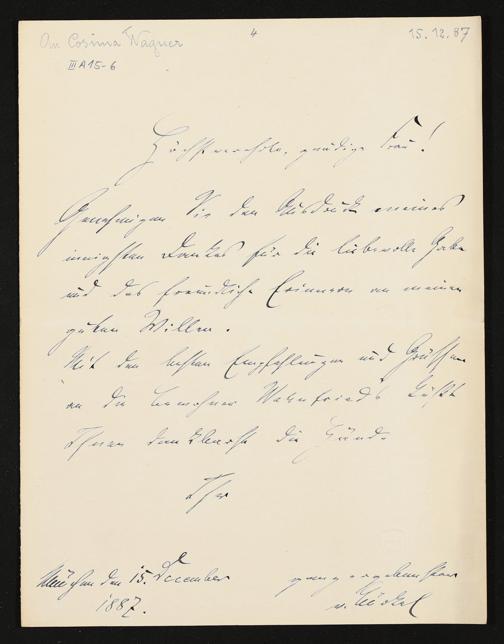 An Cosima Wagner
4
15.12.87
III A 15-6
Höchstverehrte, gnädige Frau!
Genehmigen Sie den Ausdruck meines
innigsten Dankes für die liebevolle Gabe
und das freundliche Erinnern an meinen
guten Willen.
Mit den besten Empfehlungen und Grüssen
an die Bewohner Wahnfrieds küßt
Ihnen dankbarst die Hände
Ihr
ganz ergebenster
München den 15. December
1887.